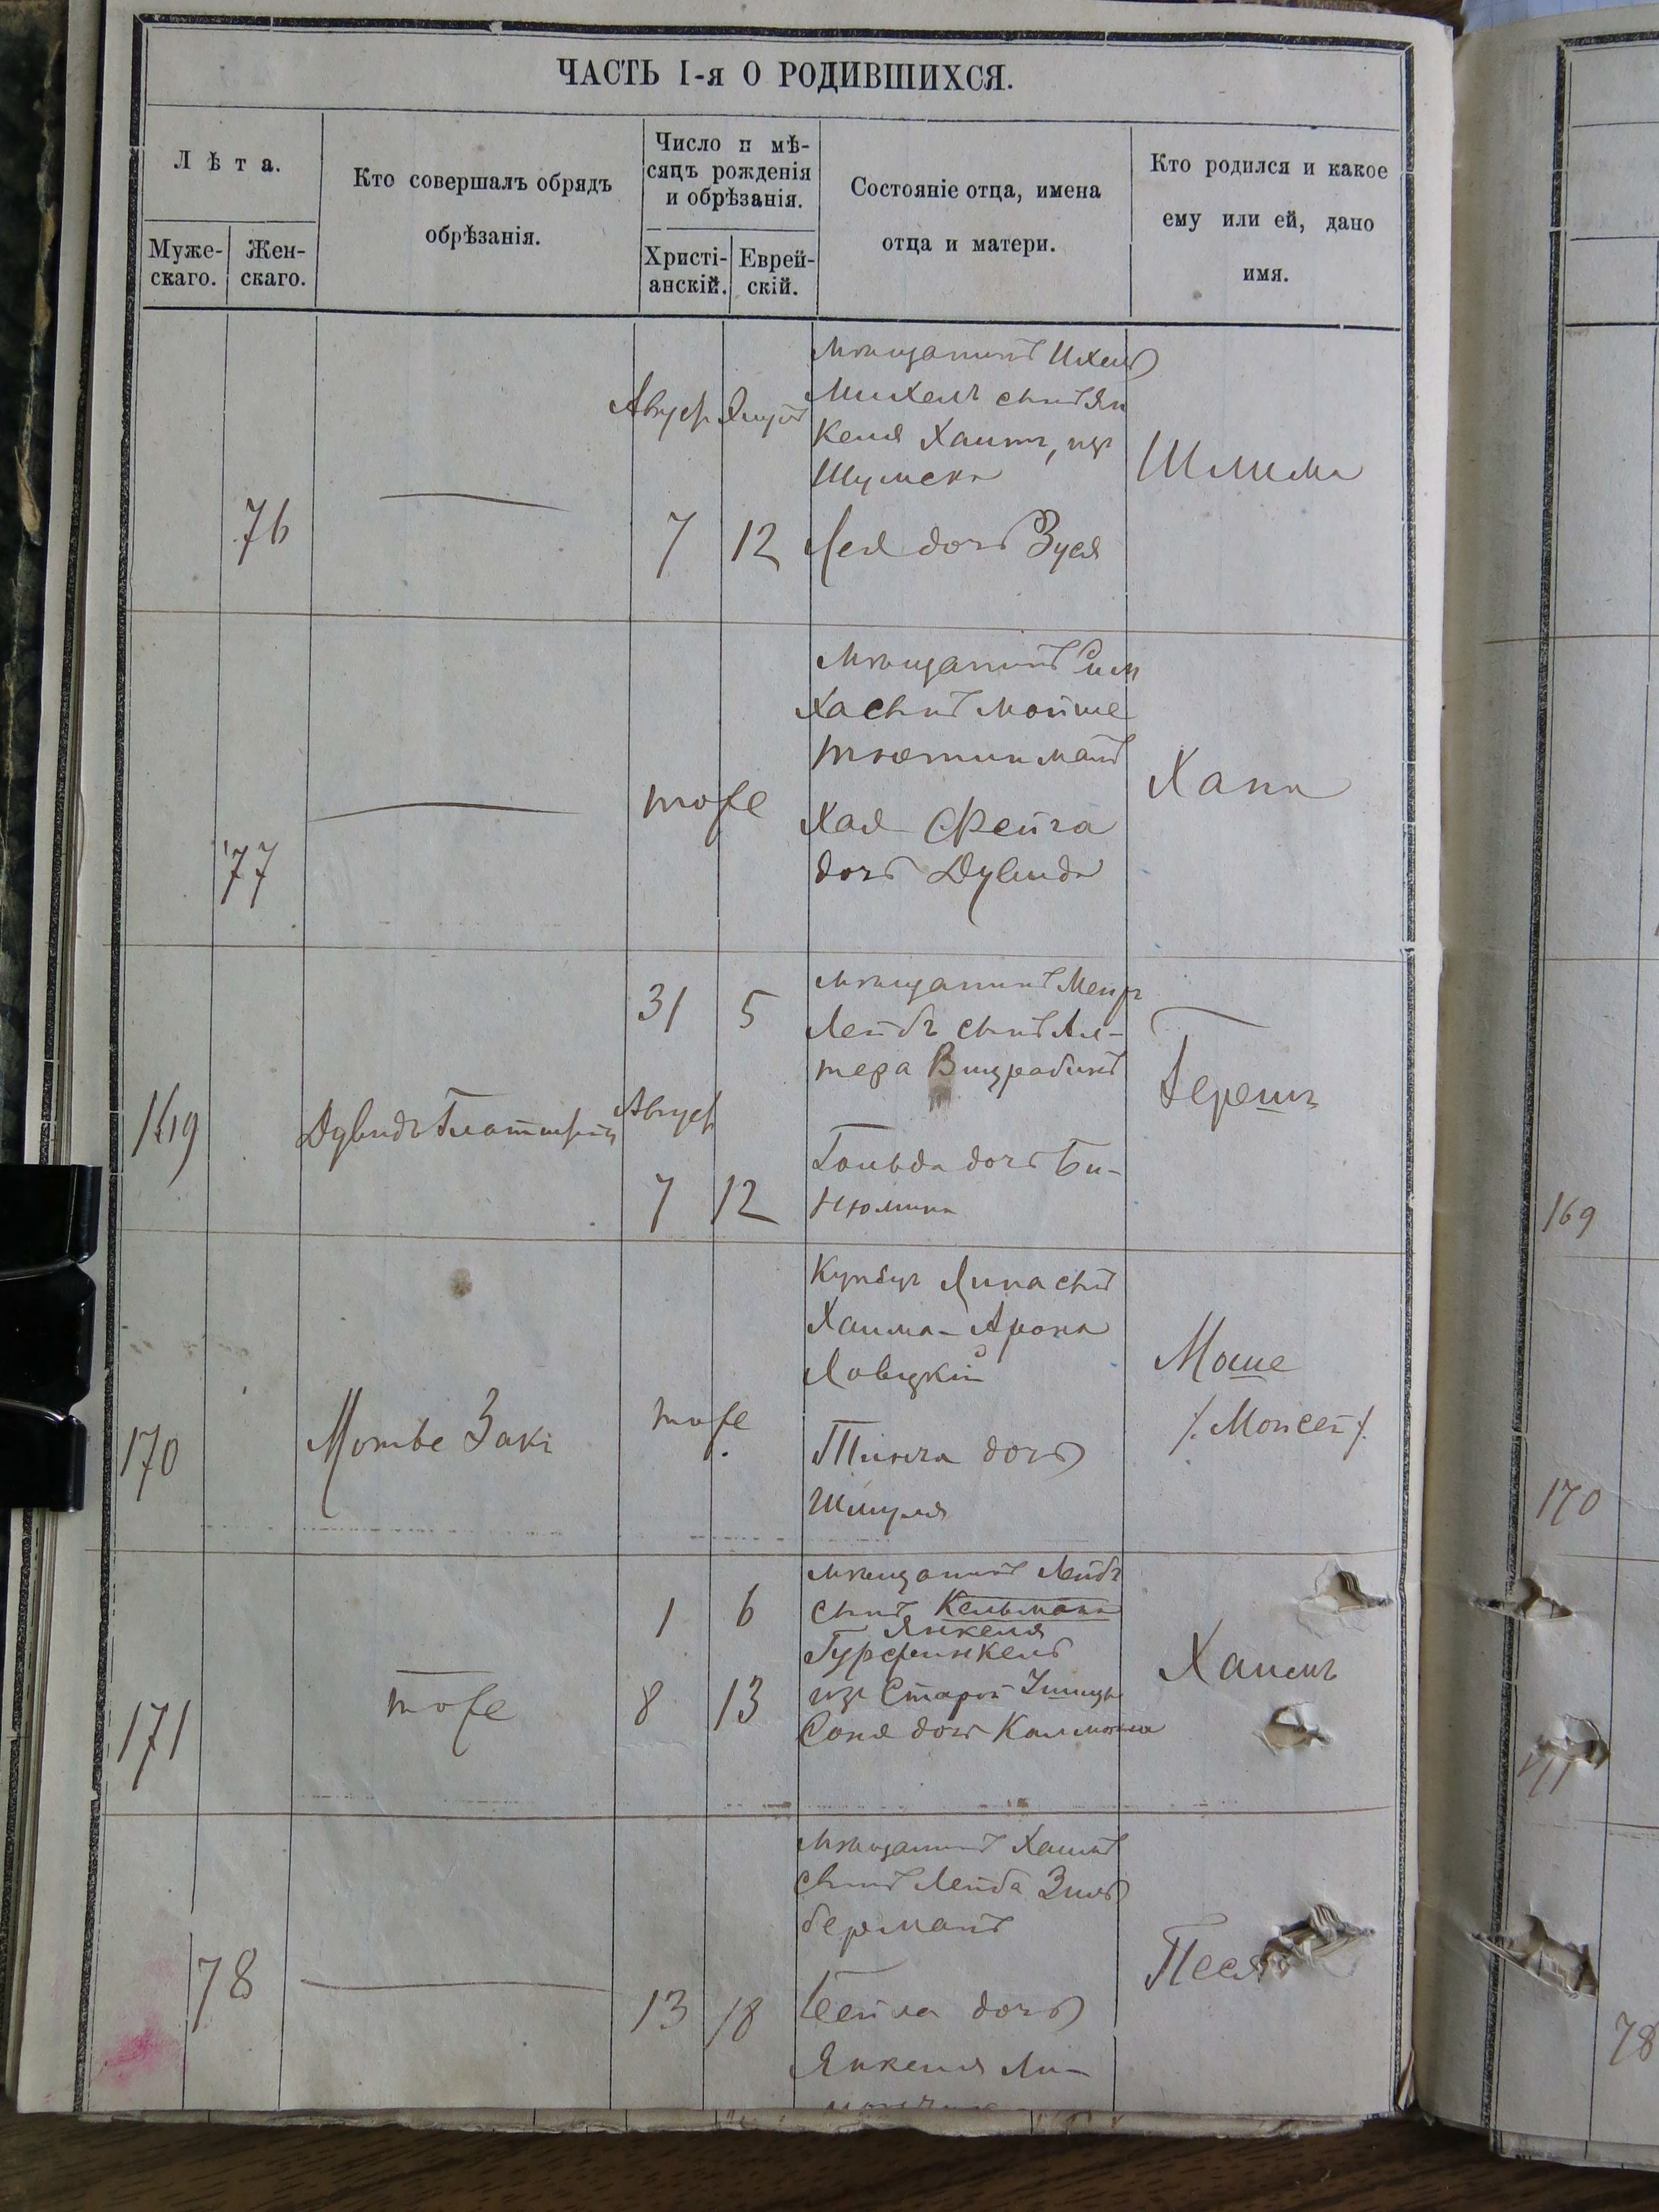 ЧАСТЬ I-я О РОДИВШИХСЯ.
Лѣта.
Муже-
скаго.
Жен-
скаго.
Кто совершалъ обрядъ
обрѣзанія.
Число и мѣ-
сяцъ рожденія
и обрѣзанія.
Христі-
анскій.
Еврей-
скій.
Состояніе отца, имена
отца и матери.
Кто родился и какое
ему или ей, дано
имя.
76
Август
7
12
мѣщанинъ Ихель
Михель сынъ Ян
келя Хаитъ, изъ
Шумска
Лея дочь Зуся
77
тоже
мѣщанинъ Сим
ха сынъ Мойше
Хая Фейга
дочь Дувида
Хана
169
Дувидъ
31
5
Август
7
12
мѣщанинъ Меиръ
Лейбъ сынъ Ал-
тера
Гольда дочь Би-
нюмина
Гершъ
170
Мотье Закъ
тоже
Купецъ Липа сынъ
Хаима-Арона
Ловецкій
дочь
Шмуля
Моше
/. Мойсей /.
171
тоже
1
6
8
13
мѣщанинъ Лейбъ
сынъ Кельмана
Янкеля
Гурфинкель
изъ Старой Ушицы
Соня дочь Кальмана
Хаимъ
78
13
18
мѣщанинъ Хаимъ
сынъ Лейба Зиль
берманъ
Бейла дочь
Янкеля Ли-
Песя
169
170
171
78